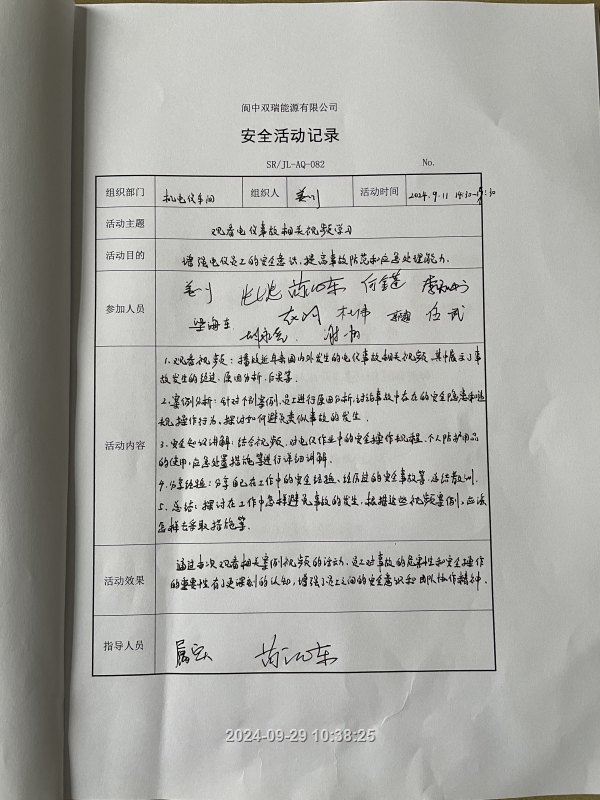 阆中双瑞能源有限公司
安全活动记录
SR/JL-AQ-082 No.
组织部门 机电仪车间 组织人 姜川 活动时间 2024.9.11 14:30-15:30
活动主题 观看电仪事故相关视频学习
活动目的 增强电仪员工的安全意识,提高事故防范和应急处理能力.
参加人员 姜川
梁海生 杜伟 伍武
1.观看视频:播放近年来国内外发生的电仪事故相关视频,其中展示了事
故发生的经过、原因分析、后果等.
2.案例分析:针对个别案例,员工进行原因分析,讨论事故中存在的安全隐患和违
规操作行为,探讨如何避免类似事故的发生.
活动内容 3.安全知识讲解:结合视频,对电仪作业中的安全操作规程、个人防护用品
的使用,应急处置措施等进行详细讲解.
4.分享经验:分享自己在工作中的安全经验、经历过的安全事故等,总结教训.
5.总结:探讨在工作中怎样避免事故的发生,根据这些视频案例,应该
怎样去采取措施等.
通过本次观看相关案例视频的活动,员工对事故的危害性和安全操作
活动效果 的重要性有了更深刻的认知,增强了员工之间的安全意识和团队协作精神.
指导人员
2024-09-29 10:38:25